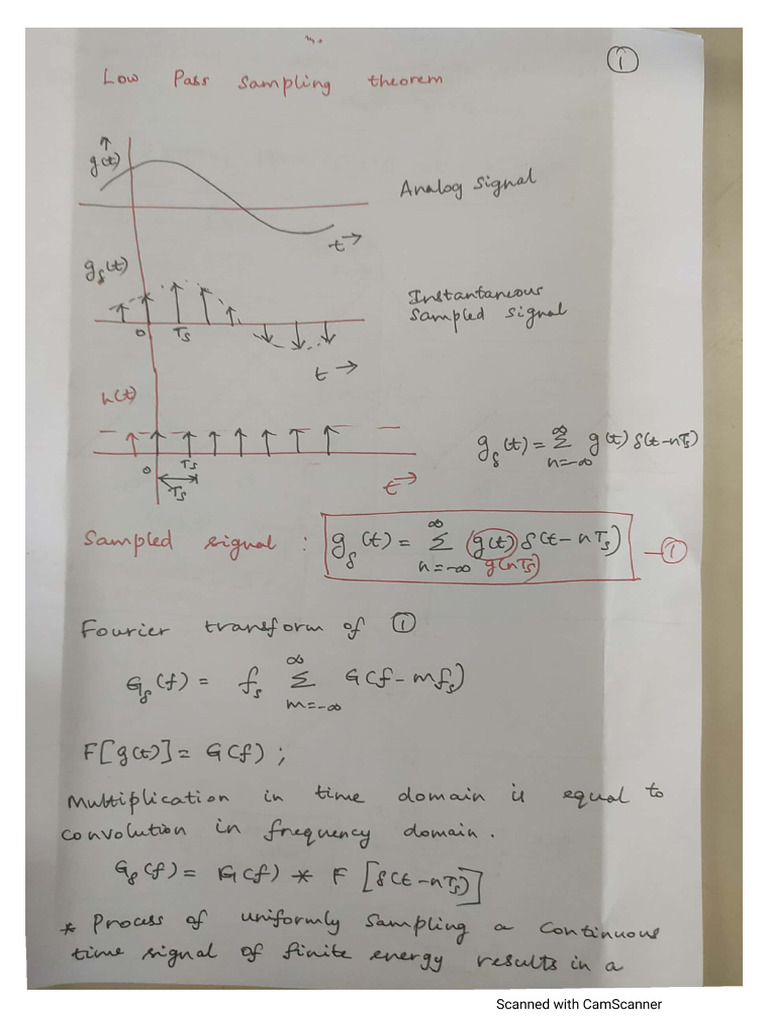 ①
Low Pass Sampling theorem
g(t)
Analog Signal
t →
g_δ(t)
Instantaneous
Sampled signal
0 Ts
t →
h(t)
g_δ(t) = ∞ Σ n=-∞ g(t) δ(t-nTs)
0 Ts
Ts
t →
Sampled signal : g_δ(t) = ∞ Σ n=-∞ g(t) δ(t-nTs) — ①
g(nTs)
Fourier transform of ①
G_δ(f) = fs ∞ Σ m=-∞ G(f-mfs)
F[g(t)] = G(f) ;
Multiplication in time domain is equal to
convolution in frequency domain.
G_δ(f) = G(f) * F [δ(t-nTs)]
* Process of uniformly sampling a continuous
time signal of finite energy results in a
Scanned with CamScanner